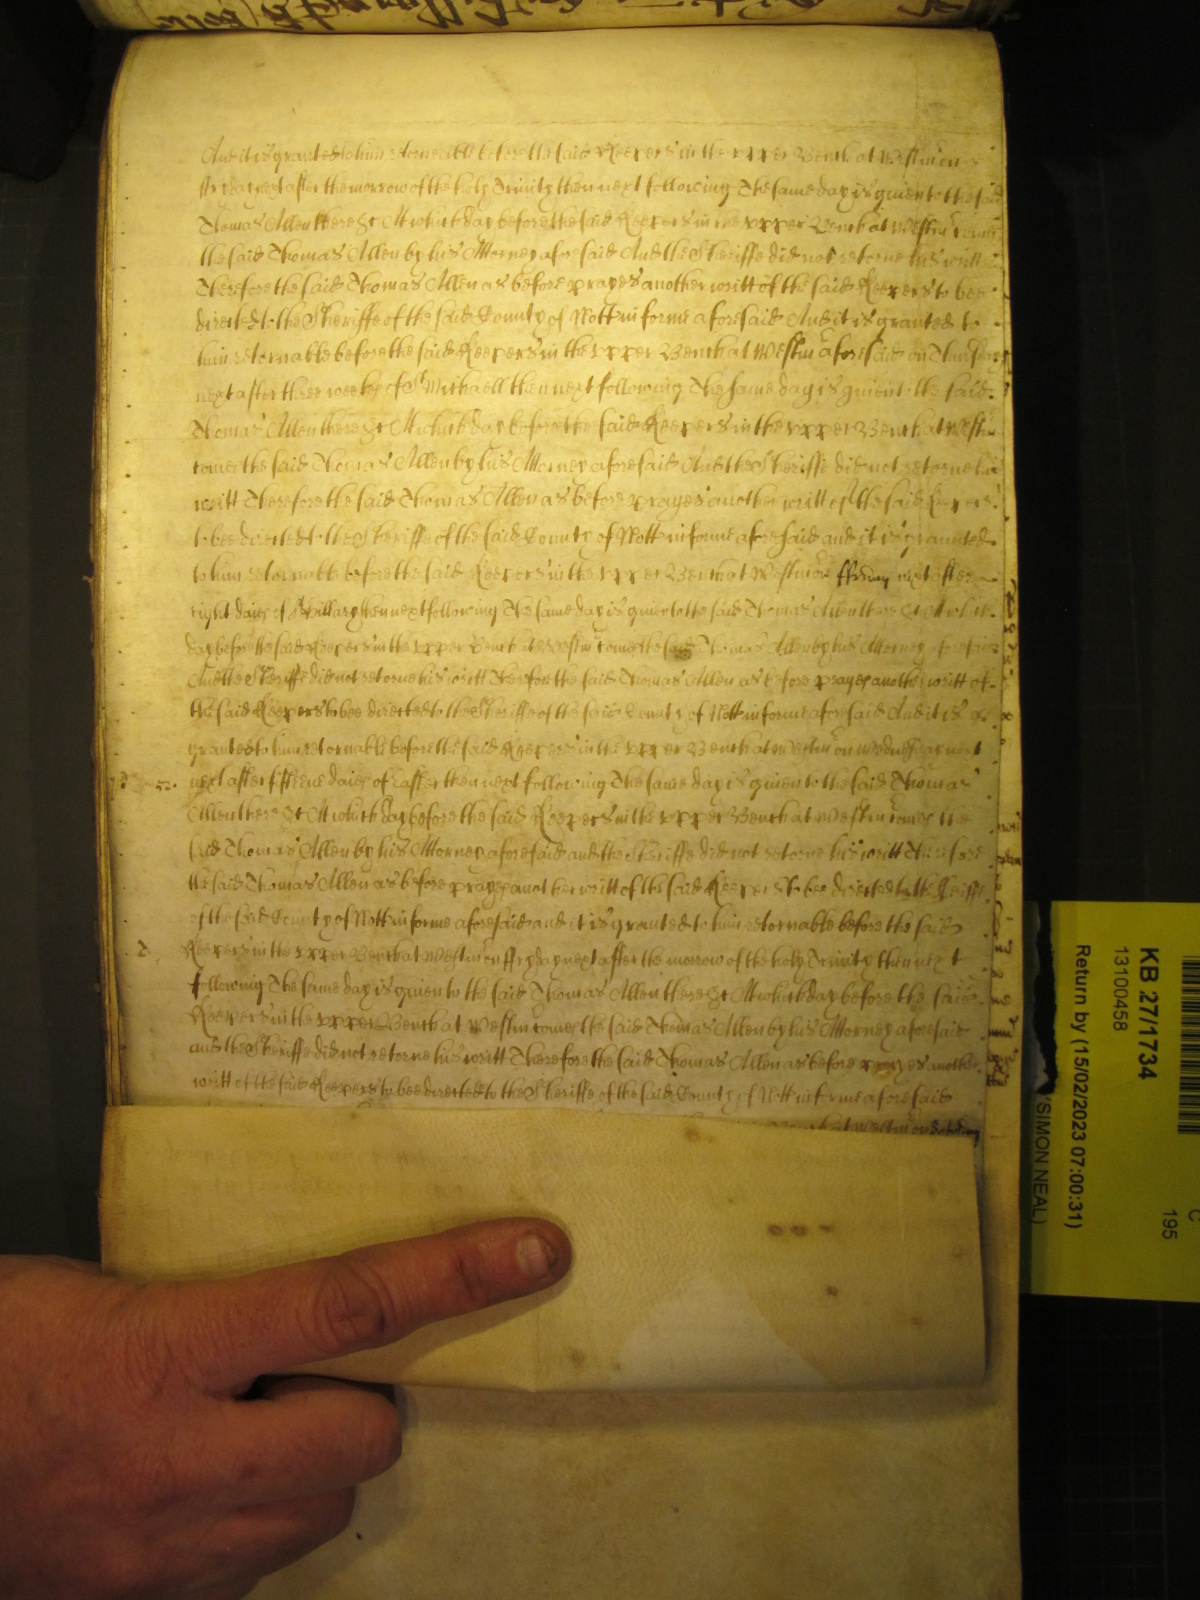 And it is granted to him retorneable before the said Keepers in the upper Bench at Westm on
next after the morrow of the holy Trinity then next following The same day is given to the said
Thomas Allen there &c At which day before the said Keepers in the upper Bench at Westm comes
the said Thomas Allen by his Attorney aforesaid And the Sheriffe did not retorne his writt
Therefore the said Thomas Allen as before prayes another writt of the said Keepers to bee
directed to the Sheriffe of the said County of Nott in forme aforesaid And it is granted to
him retornable before the said Keepers in the upper Bench at Westm aforesaid on Thursday
next after three weekes of St Michaell then next following The same day is given to the said
Thomas Allen there &c At which day before the said Keepers in the upper Bench at Westm
comes the said Thomas Allen by his Attorney aforesaid And the Sheriffe did not retorne his
writt Therefore the said Thomas Allen as before prayes another writt of the said Keepers
to bee directed to the Sheriffe of the said County of Nott in forme aforesaid and it is graunted
to him retornable before the said Keepers in the upper Bench at Westm on ffriday next after
eight daies of St Hillary then next following The same day is given to the said Thomas Allen there &c At which
day before the said Keepers in the upper Bench at Westm comes the said Thomas Allen by his Attorney aforesaid
And the Sheriffe did not retorne his writt Therefore the said Thomas Allen as before prayes another writt of
the said Keepers to bee directed to the Sheriffe of the said County of Nott in forme aforesaid And it is
granted to him retornable before the said Keepers in the upper Bench at Westm on Wednesday next
next after fifteene daies of Easter then next following The same day is given to the said Thomas
Allen there &c At which day before the said Keepers in the upper Bench at Westm comes the
said Thomas Allen by his Attorney aforesaid and the Sheriffe did not retorne his writt Therefore
the said Thomas Allen as before prayes another writt of the said Keepers to bee directed to the Sheriffe
of the said County of Nott in forme aforesaid and it is granted to him retornable before the said
Keepers in the upper Bench at Westm on ffryday next after the morrow of the holy Trinity then next
following The same day is given to the said Thomas Allen there &c At which day before the said
Keepers in the upper Bench at Westm comes the said Thomas Allen by his Attorney aforesaid
and the Sheriffe did not retorne his writt Therefore the said Thomas Allen as before prayes another
writt of the said Keepers to bee directed to the Sheriffe of the said County of Nott in forme aforesaid
Bench at Westm on
KB 27/1734
13100458
Return by (15/02/2023 07:00:31)
(SIMON NEAL)
C
195